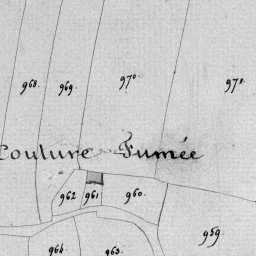 968.
969.
970
978
Couture Fumée
962
961
960.
959.
964
963